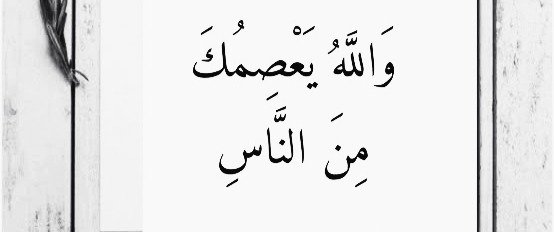 وَاللَّهُ يَعْصِمُكَ
مِنَ النَّاسِ